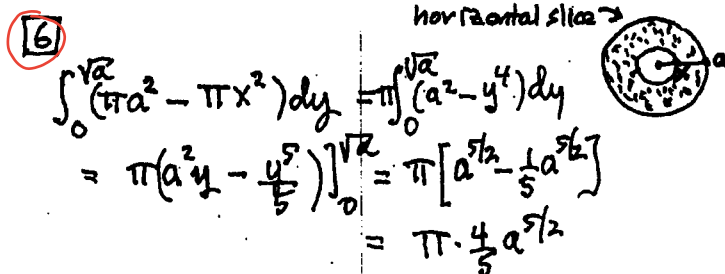 horizontal slice→
6
∫₀^√a (πa² − πx²) dy = π∫₀^√a (a² − y⁴) dy
a
x
= π(a²y − y⁵/5)]₀^√a = π[a^5/2 − 1/5 a^5/2]
= π · 4/5 a^5/2